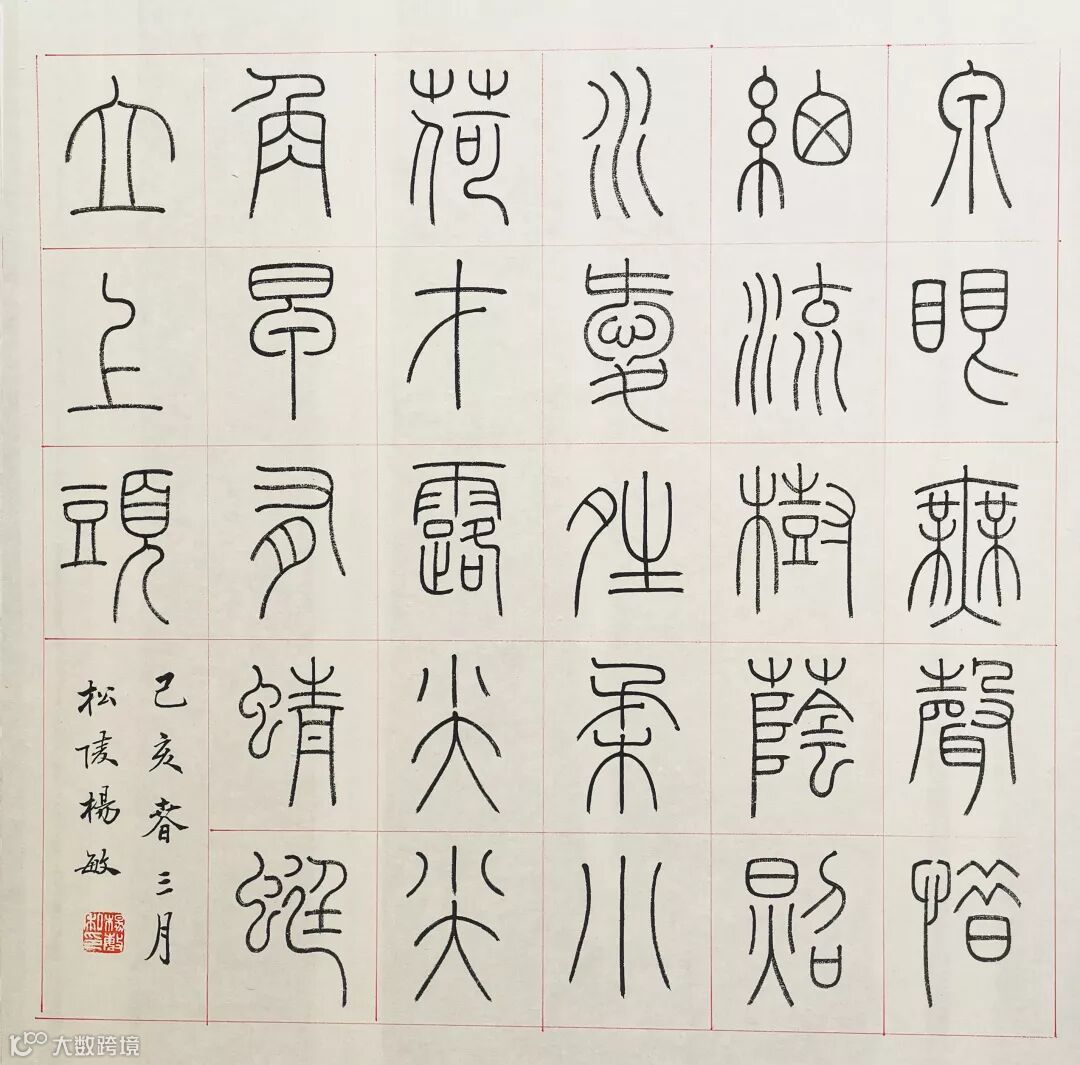 泉眼無聲惜
細流樹蔭照
水愛夝柔小
荷才露尖尖
角早有蜻蜓
立上頭
己亥春三月
松陵楊敏
大数跨境